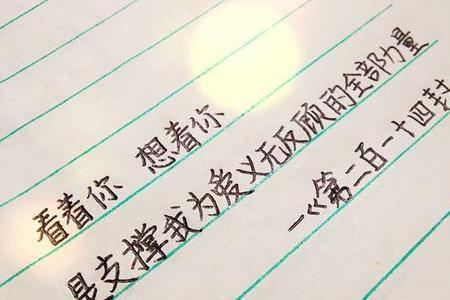 看着你 想着你
是支撑我为爱义无反顾的全部力量
—《第二百一十四封